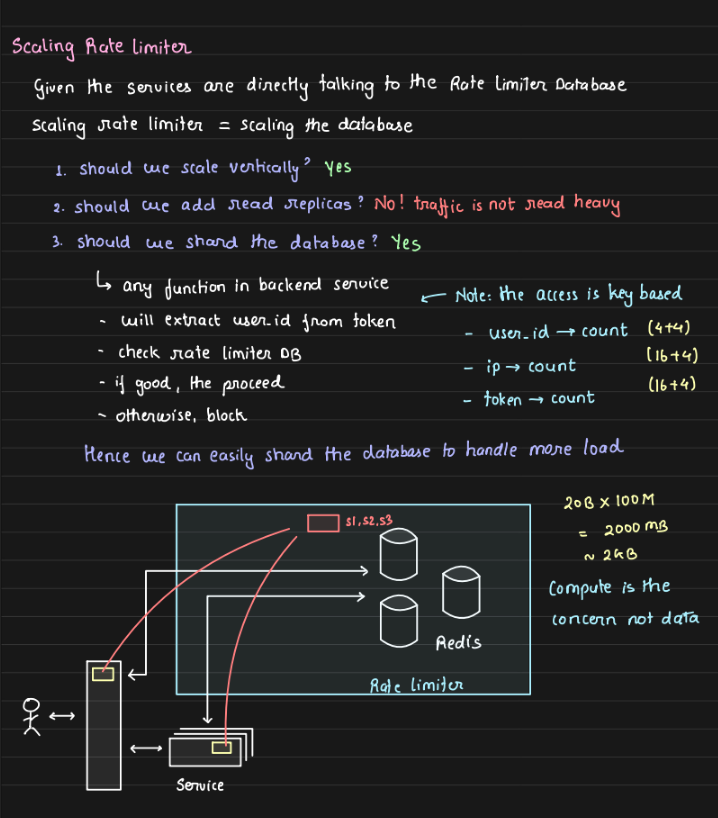 Scaling Rate limiter
Given the services are directly talking to the Rate Limiter Database
scaling rate limiter = scaling the database
1. should we scale vertically? Yes
2. should we add read replicas? No! traffic is not read heavy
3. should we shard the database? Yes
↳ any function in backend service
- will extract user_id from token
- check rate limiter DB
- if good, the proceed
- otherwise, block
← Note: the access is key based
- user_id → count (4+4)
- ip → count (16+4)
- token → count (16+4)
Hence we can easily shard the database to handle more load
20B × 100M
= 2000 MB
~ 2GB
Compute is the
concern not data
S1,S2,S3
Redis
Rate limiter
Service